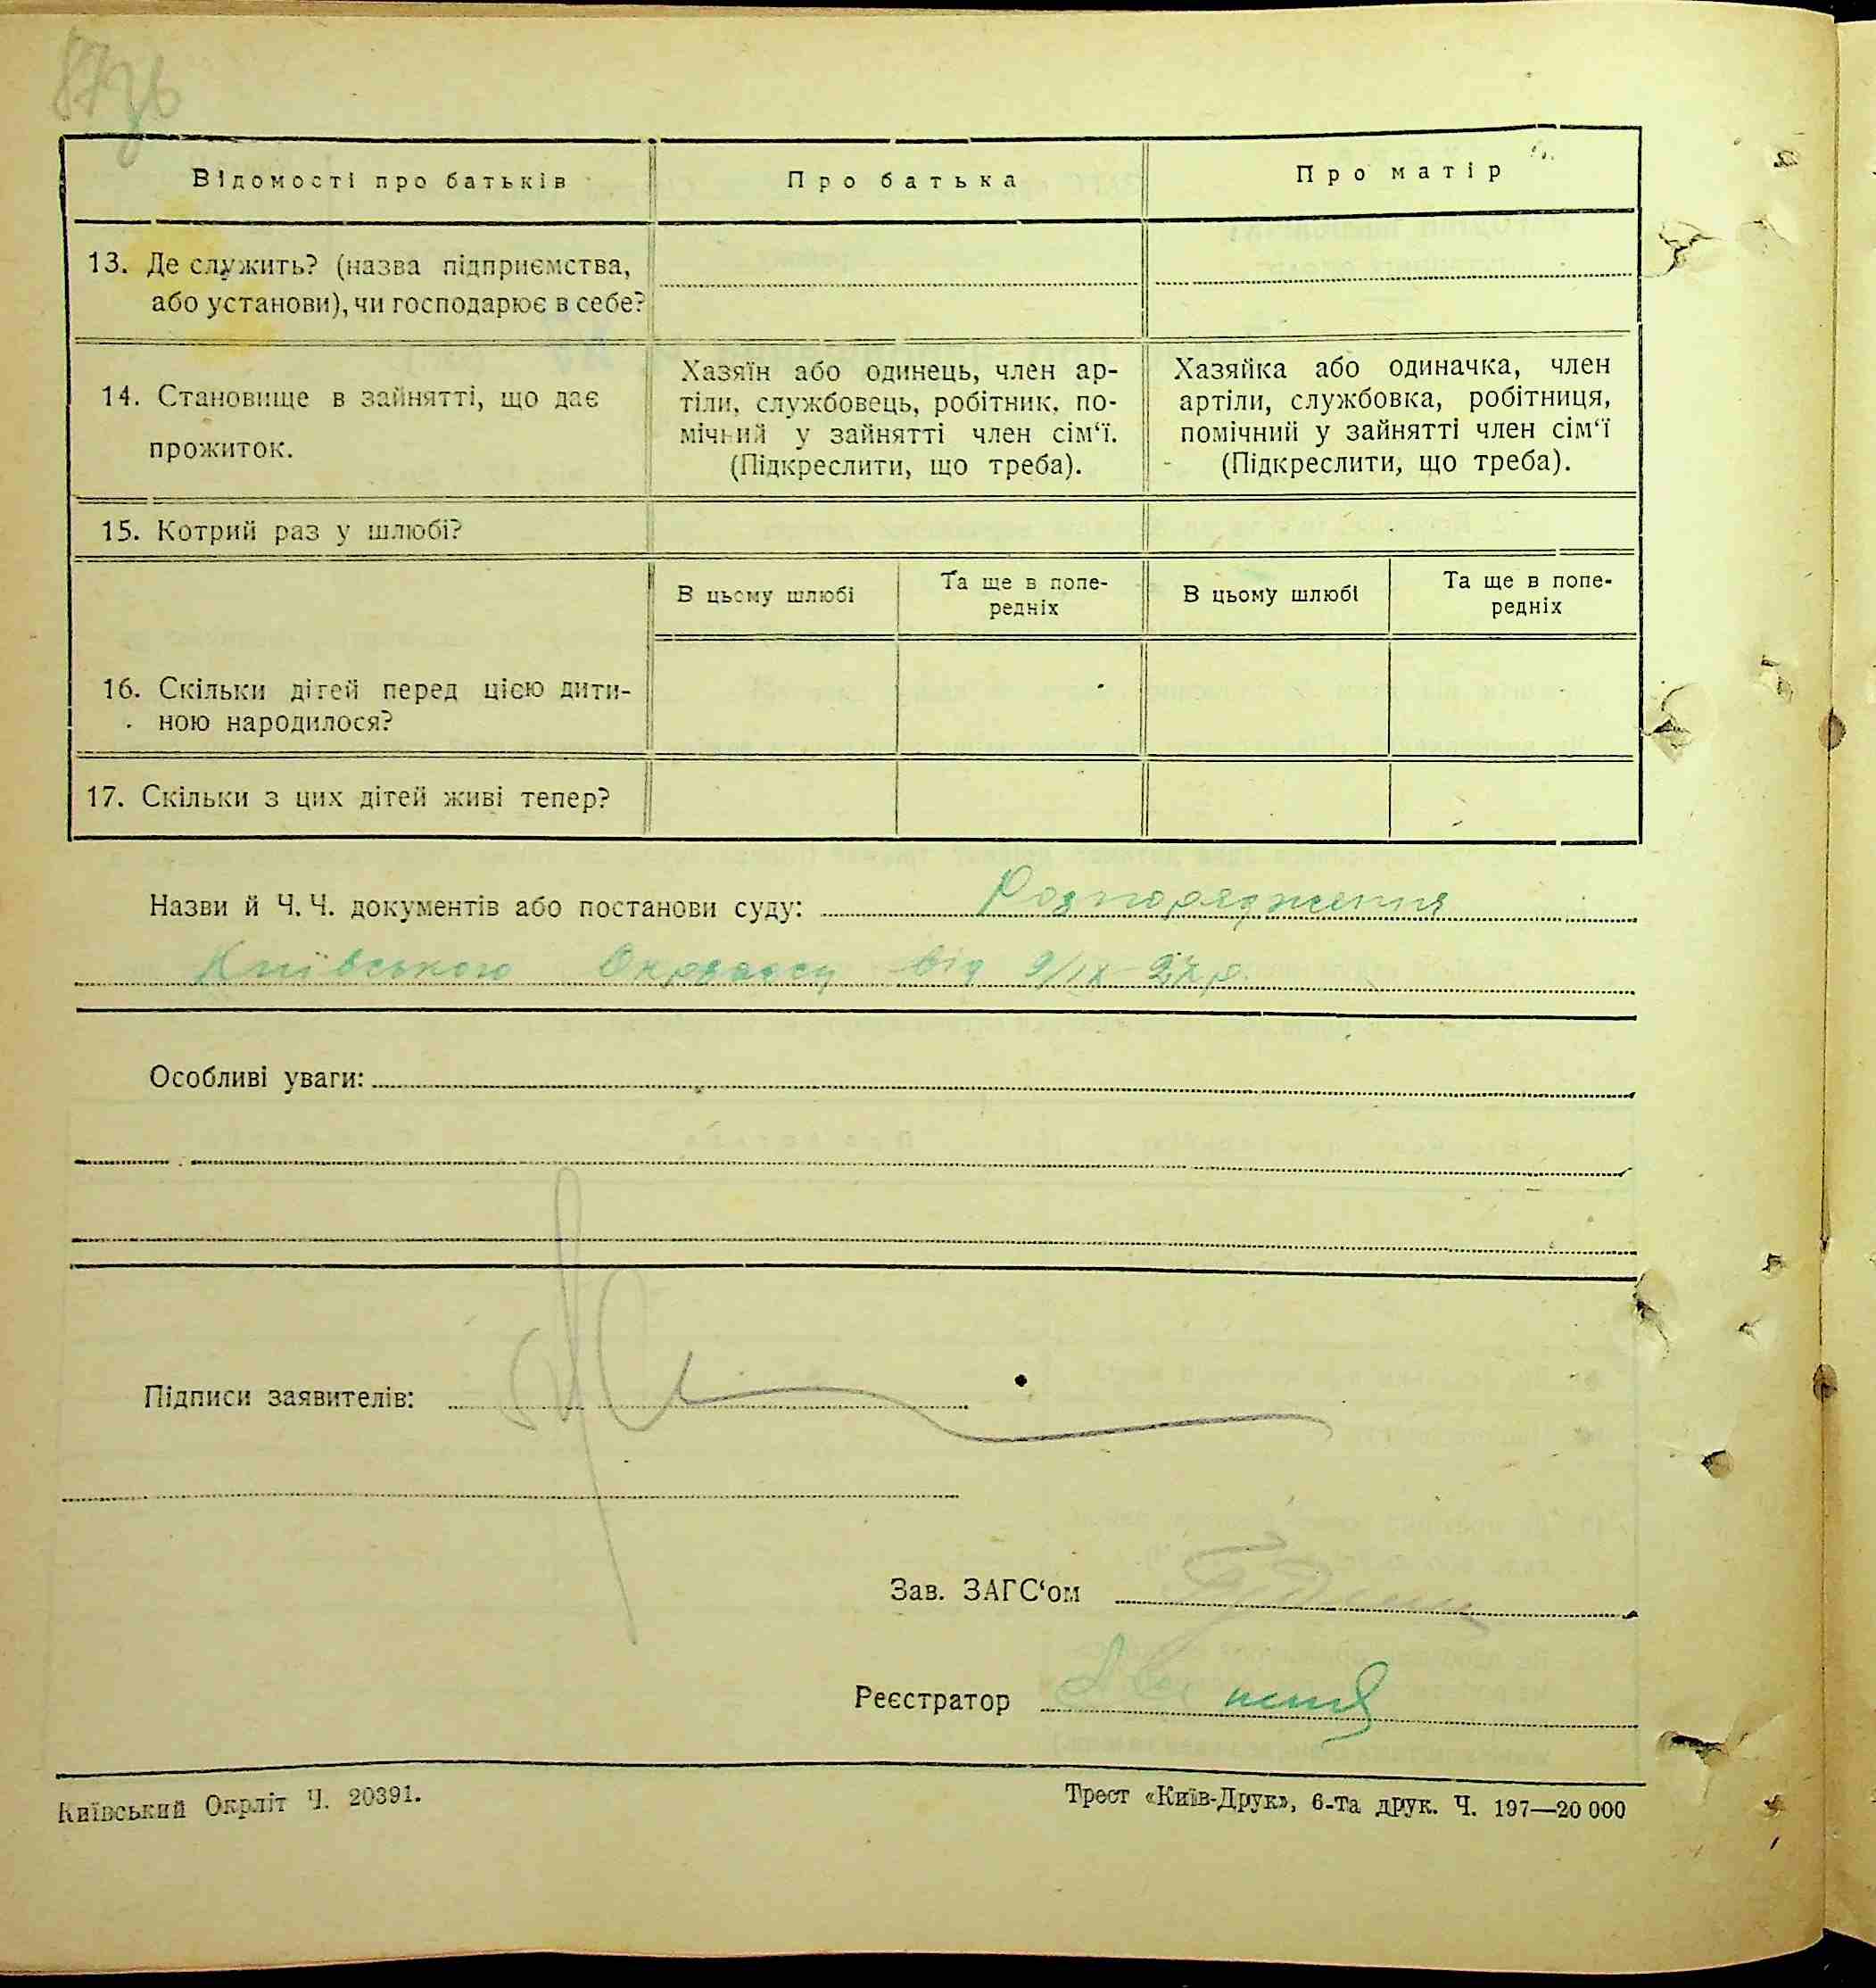 87зв
Відомості про батьків
Про батька
Про матір
13. Де служить? (назва підприємства,
або установи), чи господарює в себе?
14. Становище в зайнятті, що дає
прожиток.
Хазяїн або одинець, член ар-
тіли, службовець, робітник, по-
мічний у зайнятті член сім‘ї.
(Підкреслити, що треба).
Хазяйка або одиначка, член
артіли, службовка, робітниця,
помічний у зайнятті член сім‘ї
(Підкреслити, що треба).
15. Котрий раз у шлюбі?
В цьому шлюбі
Та ще в попе-
редніх
В цьому шлюбі
Та ще в попе-
редніх
16. Скільки дітей перед цією дити-
ною народилося?
17. Скільки з цих дітей живі тепер?
Назви й Ч. Ч. документів або постанови суду: Розпорядження
Київського Окрзагсу від 9/IX-27р.
Особливі уваги:
Підписи заявителів:
Зав. ЗАГС‘ом
Реєстратор
Київський Окрліт Ч. 20391.
Трест «Київ-Друк», 6-та друк. Ч. 197—20 000